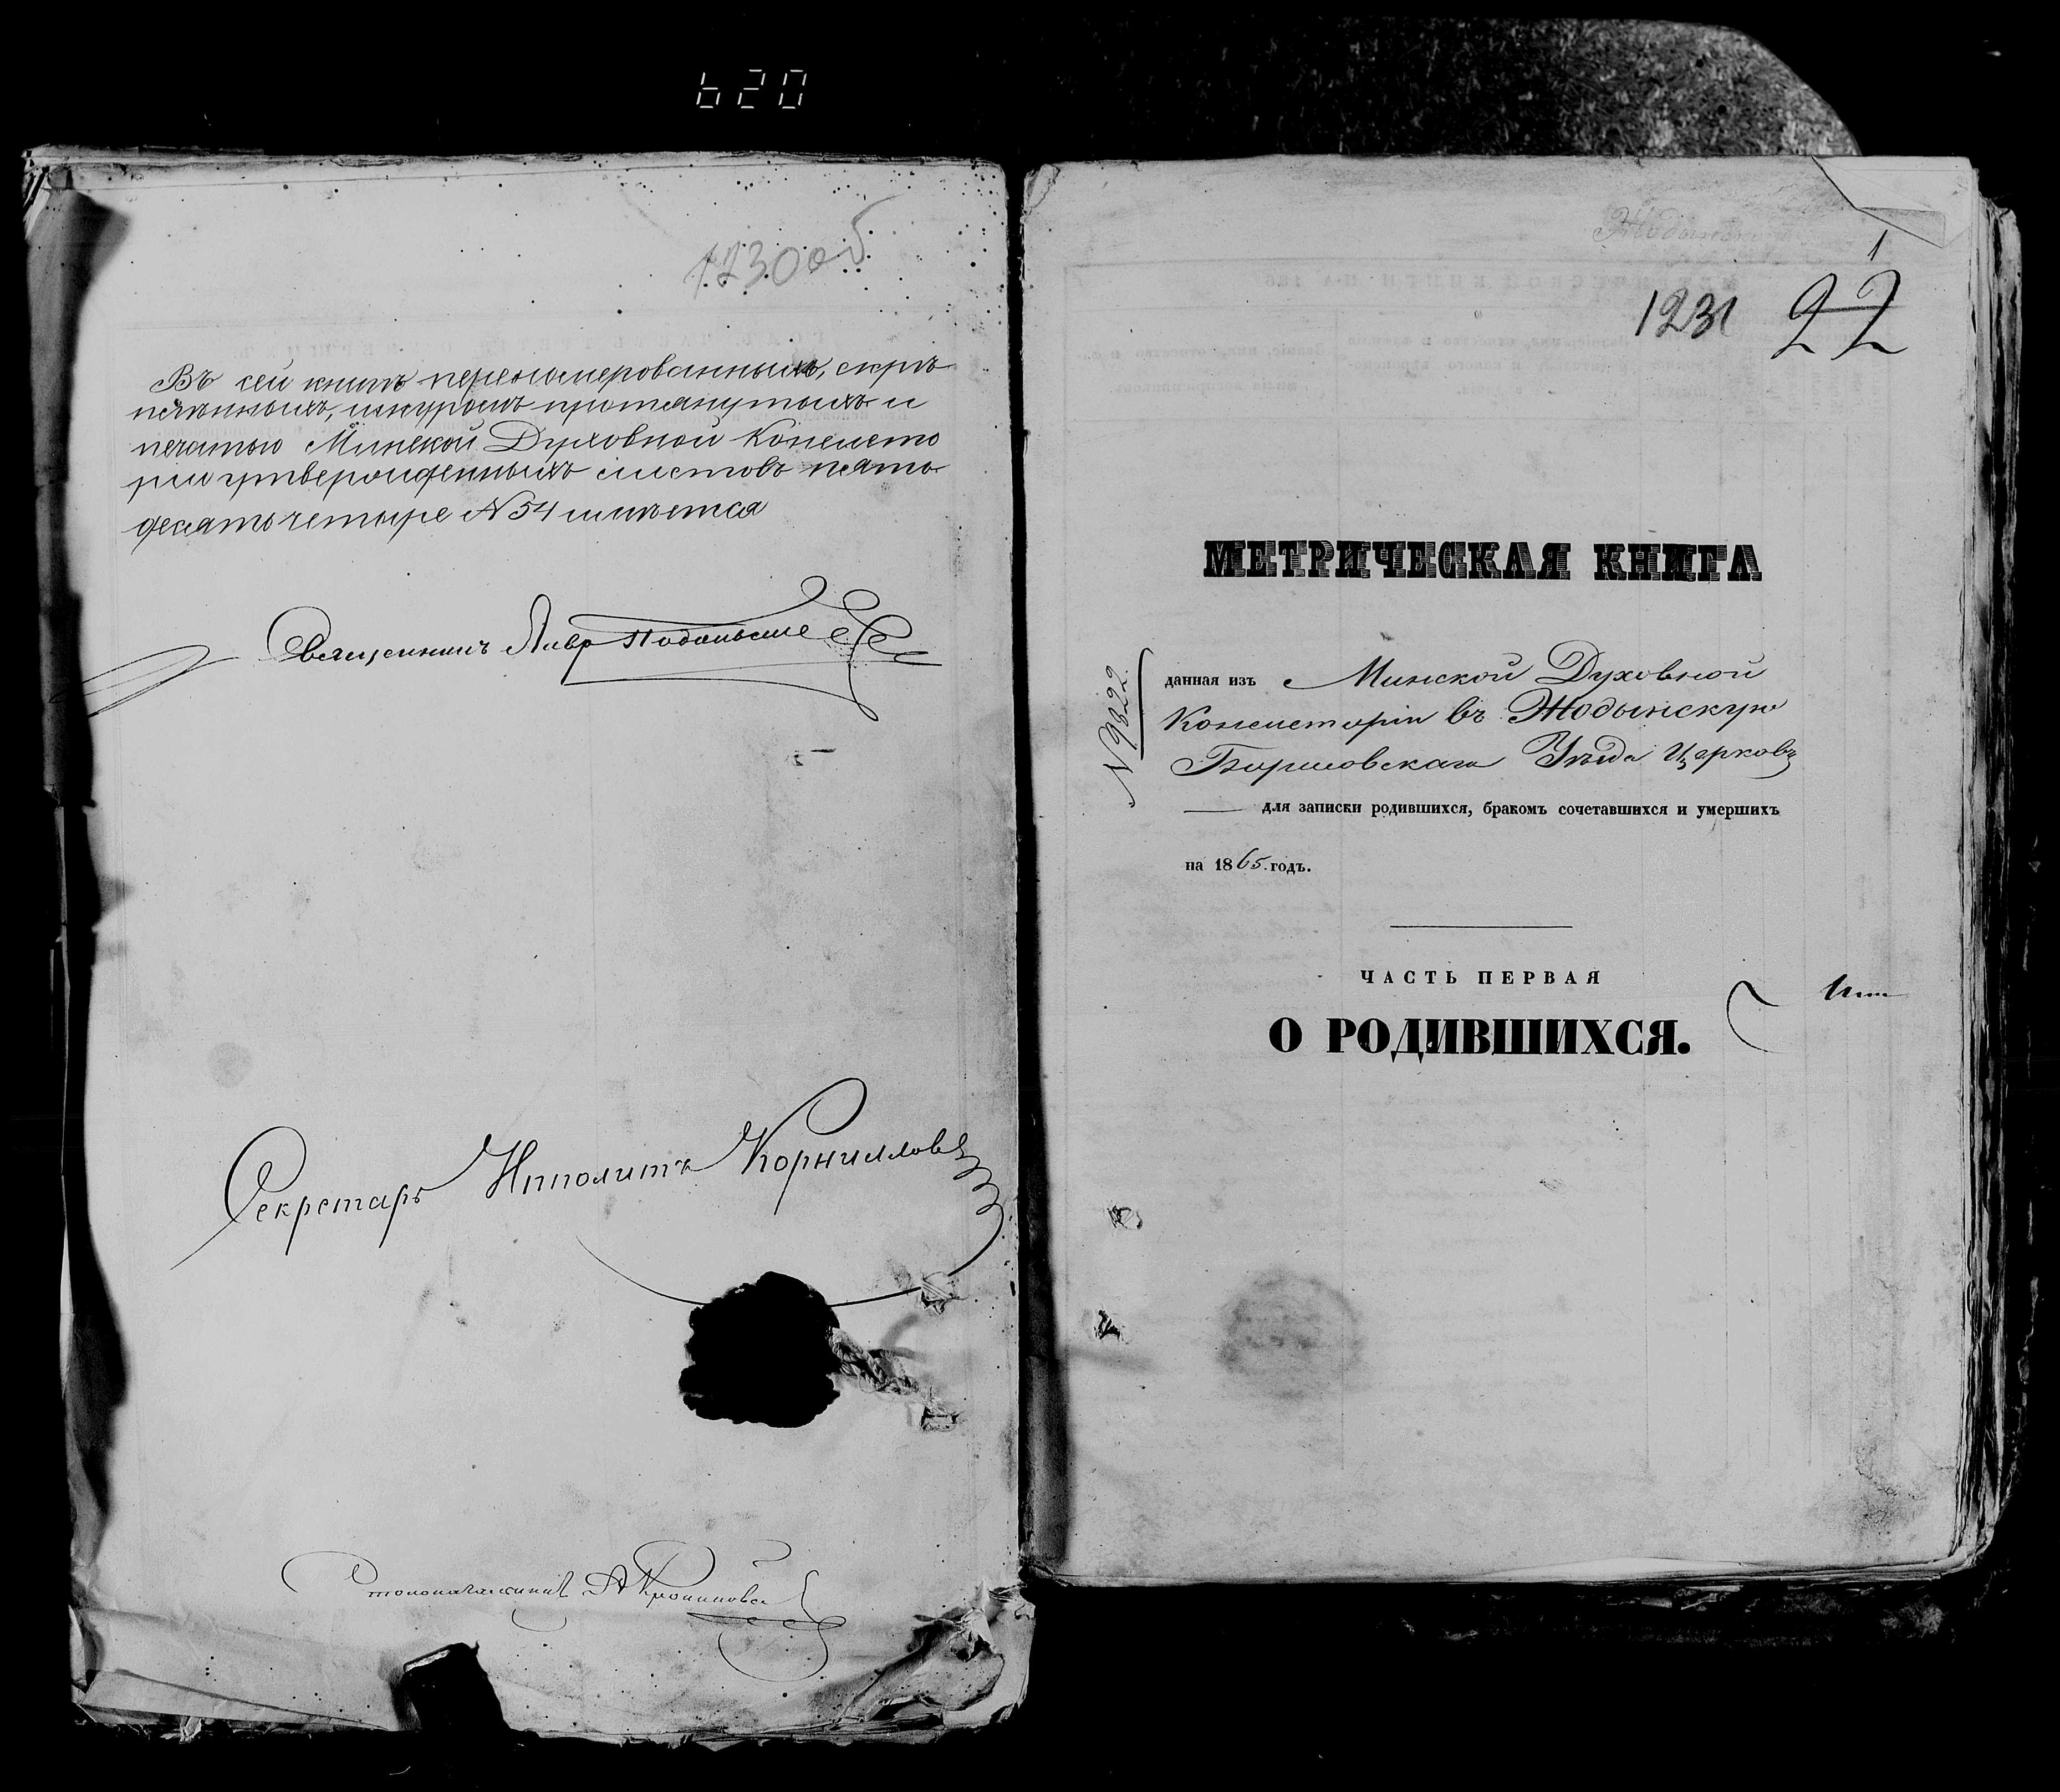 620
1230 об
Въ сей книгѣ перенумерованныхъ, скрѣ-
пленныхъ, шнуромъ протянутыхъ и
печатью Минской Духовной Консисто
ріи утвержденныхъ листовъ пять-
десятъ четыре № 54 имѣется
Священникъ
Секретарь Ипполитъ Корнилловъ
Столоначальникъ
Жодынск
1
1231 22
МЕТРИЧЕСКАЯ КНИГА
№ 9822
данная изъ Минской Духовной
Консисторіи въ Жодынскую
Борисовскаго Уѣзда Церковь
для записки родившихся, бракомъ сочетавшихся и умершихъ
на 1865 годъ.
ЧАСТЬ ПЕРВАЯ
О РОДИВШИХСЯ.